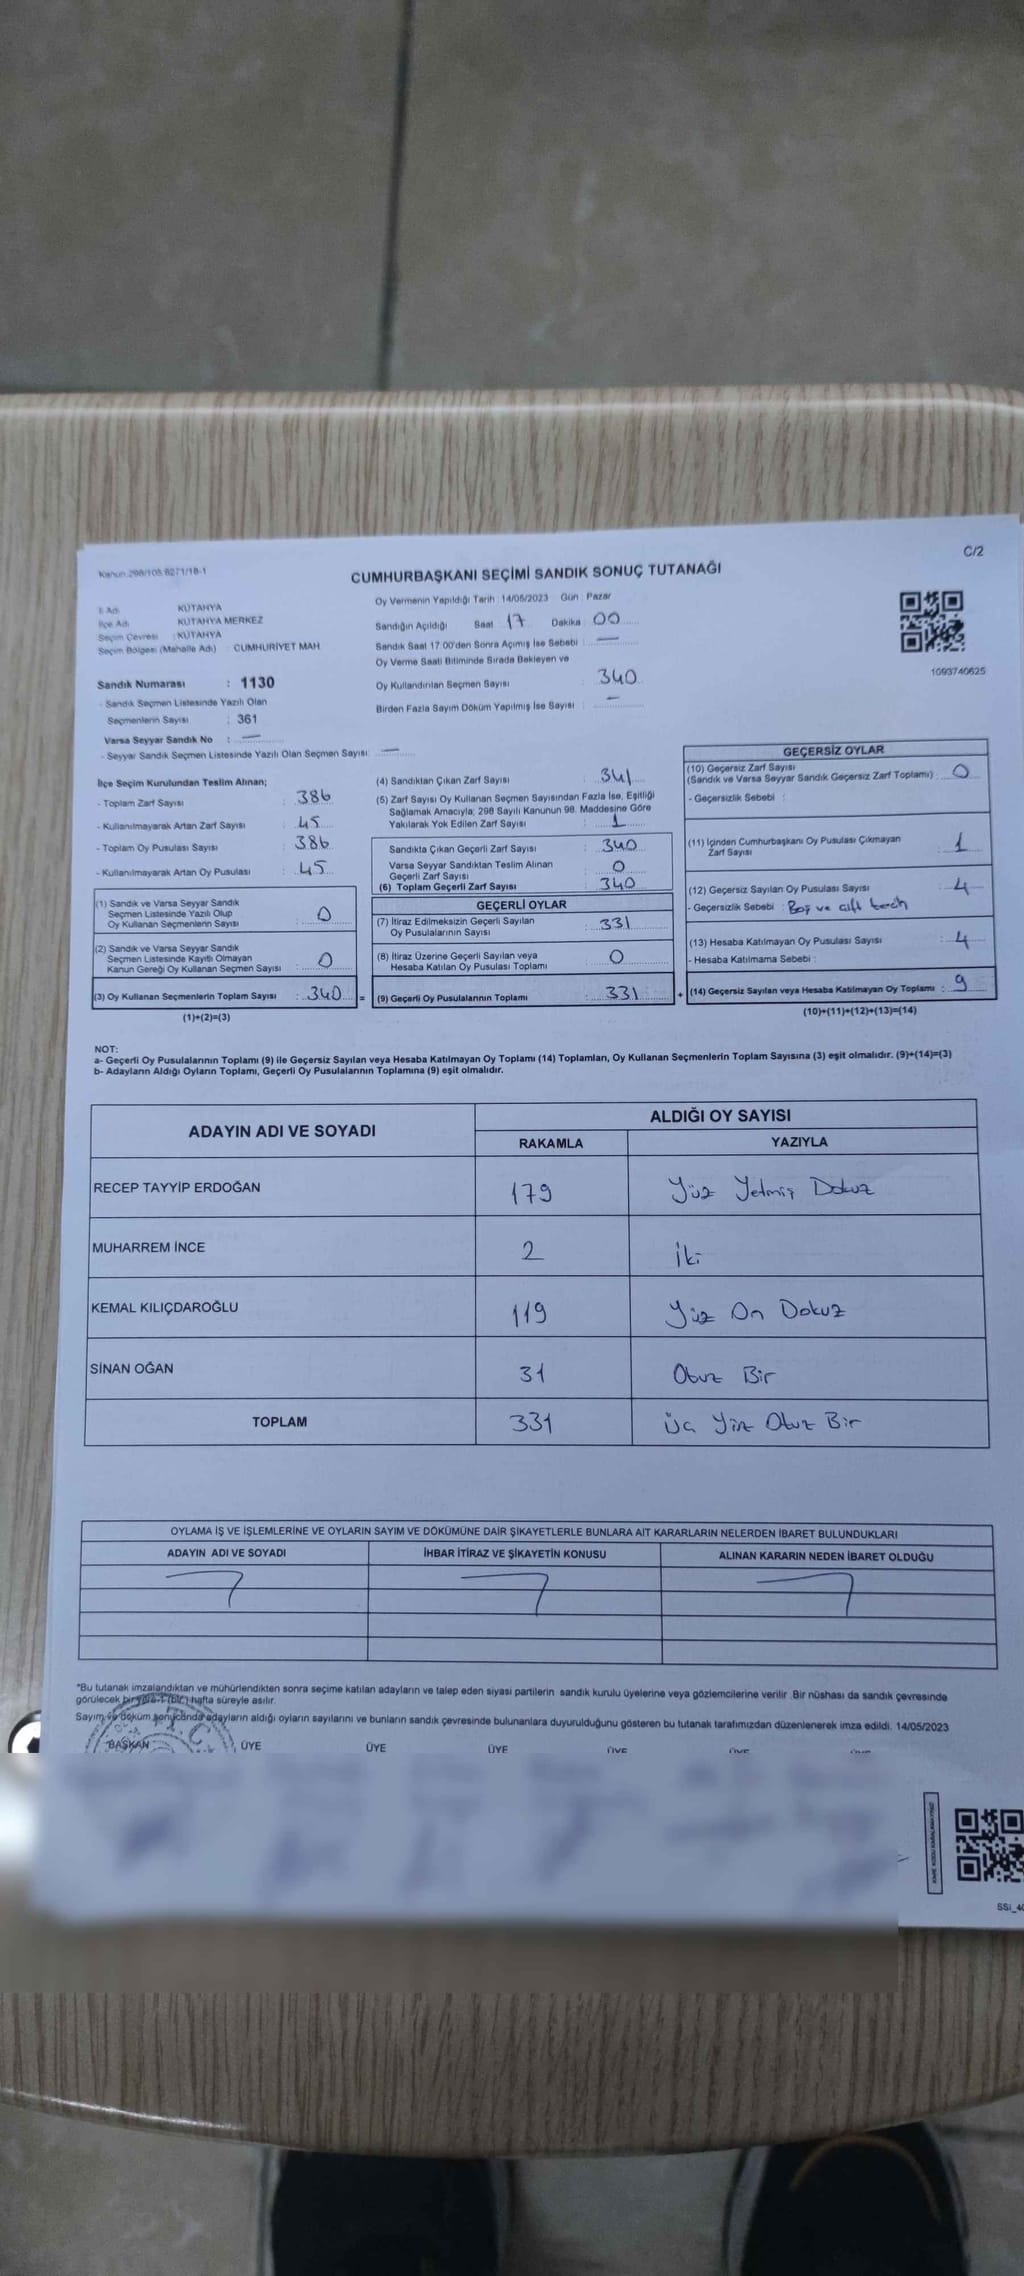 C/2
Kanun 298/105 6271/18-1
CUMHURBAŞKANI SEÇİMİ SANDIK SONUÇ TUTANAĞI
İl Adı : KÜTAHYA
İlçe Adı : KÜTAHYA MERKEZ
Seçim Çevresi : KÜTAHYA
Seçim Bölgesi (Mahalle Adı) : CUMHURİYET MAH
Sandık Numarası : 1130
- Sandık Seçmen Listesinde Yazılı Olan
Seçmenlerin Sayısı : 361
Varsa Seyyar Sandık No : —
- Seyyar Sandık Seçmen Listesinde Yazılı Olan Seçmen Sayısı: —
Oy Vermenin Yapıldığı Tarih : 14/05/2023 Gün : Pazar
Sandığın Açıldığı Saat 17 Dakika : 00
Sandık Saat 17.00'den Sonra Açımış İse Sebebi : —
Oy Verme Saati Bitiminde Sırada Bekleyen ve
Oy Kullandırılan Seçmen Sayısı : 340
Birden Fazla Sayım Döküm Yapılmış İse Sayısı : —
1093740625
İlçe Seçim Kurulundan Teslim Alınan;
- Toplam Zarf Sayısı : 386
- Kullanılmayarak Artan Zarf Sayısı : 45
- Toplam Oy Pusulası Sayısı : 386
- Kullanılmayarak Artan Oy Pusulası : 45
(1) Sandık ve Varsa Seyyar Sandık
Seçmen Listesinde Yazılı Olup
Oy Kullanan Seçmenlerin Sayısı : 0
(2) Sandık ve Varsa Seyyar Sandık
Seçmen Listesinde Kayıtlı Olmayan
Kanun Gereği Oy Kullanan Seçmen Sayısı : 0
(3) Oy Kullanan Seçmenlerin Toplam Sayısı : 340 =
(1)+(2)=(3)
(4) Sandıktan Çıkan Zarf Sayısı : 341
(5) Zarf Sayısı Oy Kullanan Seçmen Sayısından Fazla İse, Eşitliği
Sağlamak Amacıyla; 298 Sayılı Kanunun 98. Maddesine Göre
Yakılarak Yok Edilen Zarf Sayısı : 1
Sandıkta Çıkan Geçerli Zarf Sayısı : 340
Varsa Seyyar Sandıktan Teslim Alınan
Geçerli Zarf Sayısı : 0
(6) Toplam Geçerli Zarf Sayısı : 340
GEÇERLİ OYLAR
(7) İtiraz Edilmeksizin Geçerli Sayılan
Oy Pusulalarının Sayısı : 331
(8) İtiraz Üzerine Geçerli Sayılan veya
Hesaba Katılan Oy Pusulası Toplamı : 0
(9) Geçerli Oy Pusulalarının Toplamı : 331 +
GEÇERSİZ OYLAR
(10) Geçersiz Zarf Sayısı
(Sandık ve Varsa Seyyar Sandık Geçersiz Zarf Toplamı) : 0
- Geçersizlik Sebebi :
(11) İçinden Cumhurbaşkanı Oy Pusulası Çıkmayan
Zarf Sayısı : 1
(12) Geçersiz Sayılan Oy Pusulası Sayısı : 4
- Geçersizlik Sebebi : Boş ve çift
(13) Hesaba Katılmayan Oy Pusulası Sayısı : 4
- Hesaba Katılmama Sebebi :
(14) Geçersiz Sayılan veya Hesaba Katılmayan Oy Toplamı : 9
(10)+(11)+(12)+(13)=(14)
NOT:
a- Geçerli Oy Pusulalarının Toplamı (9) ile Geçersiz Sayılan veya Hesaba Katılmayan Oy Toplamı (14) Toplamları, Oy Kullanan Seçmenlerin Toplam Sayısına (3) eşit olmalıdır. (9)+(14)=(3)
b- Adayların Aldığı Oyların Toplamı, Geçerli Oy Pusulalarının Toplamına (9) eşit olmalıdır.
ADAYIN ADI VE SOYADI
ALDIĞI OY SAYISI
RAKAMLA YAZIYLA
RECEP TAYYİP ERDOĞAN 179 Yüz Yetmiş Dokuz
MUHARREM İNCE 2 İki
KEMAL KILIÇDAROĞLU 119 Yüz On Dokuz
SİNAN OĞAN 31 Otuz Bir
TOPLAM 331 Üç Yüz Otuz Bir
OYLAMA İŞ VE İŞLEMLERİNE VE OYLARIN SAYIM VE DÖKÜMÜNE DAİR ŞİKAYETLERLE BUNLARA AİT KARARLARIN NELERDEN İBARET BULUNDUKLARI
ADAYIN ADI VE SOYADI İHBAR İTİRAZ VE ŞİKAYETİN KONUSU ALINAN KARARIN NEDEN İBARET OLDUĞU
*Bu tutanak imzalandıktan ve mühürlendikten sonra seçime katılan adayların ve talep eden siyasi partilerin sandık kurulu üyelerine veya gözlemcilerine verilir .Bir nüshası da sandık çevresinde
görülecek bir yere 1 (bir) hafta süreyle asılır.
Sayım ve döküm sonucunda adayların aldığı oyların sayılarını ve bunların sandık çevresinde bulunanlara duyurulduğunu gösteren bu tutanak tarafımızdan düzenlenerek imza edildi. 14/05/2023
BAŞKAN ÜYE ÜYE ÜYE ÜYE ÜYE
T.C.